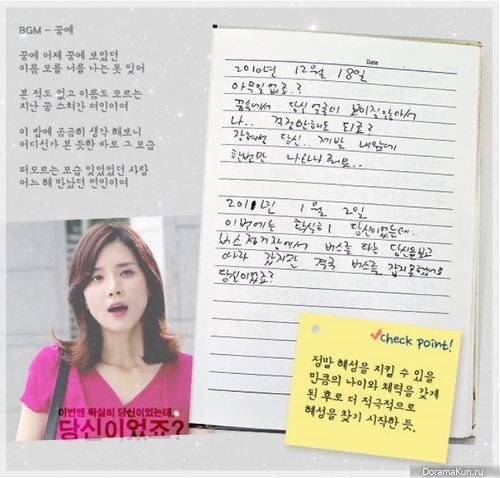 BGM - 꿈에
꿈에 어제 꿈에 보았던
이름 모를 너를 나는 못 잊어
본 적도 없고 이름도 모르는
지난 꿈 스쳐간 여인이여
이 밤에 곰곰히 생각 해보니
어디선가 본 듯한 바로 그 모습
떠오르는 모습 잊었었던 사랑
어느 해 만났던 연인이여
Date
2010년 12월 18일
아무일 없죠?
꿈속에서 당신 얼굴이 보이질 않아서
나.. 걱정안해도 되죠?
장혜성 당신.. 제발 내앞에
한번만 나타나줘요..
2011년 1월 2일
이번에는 확실히 당신이었는데..
버스 정거장에서 버스를 타는 당신을 보고
따라 갔지만 결국 버스를 잡지 못했어요
당신이었죠?
이번엔 확실히 당신이었는데..
당신이었죠?
check point!
정말 혜성을 지킬 수 있을
만큼의 나이와 체력을 갖게
된 후로 더 적극적으로
혜성을 찾기 시작한 듯.
DoramaKun.ru